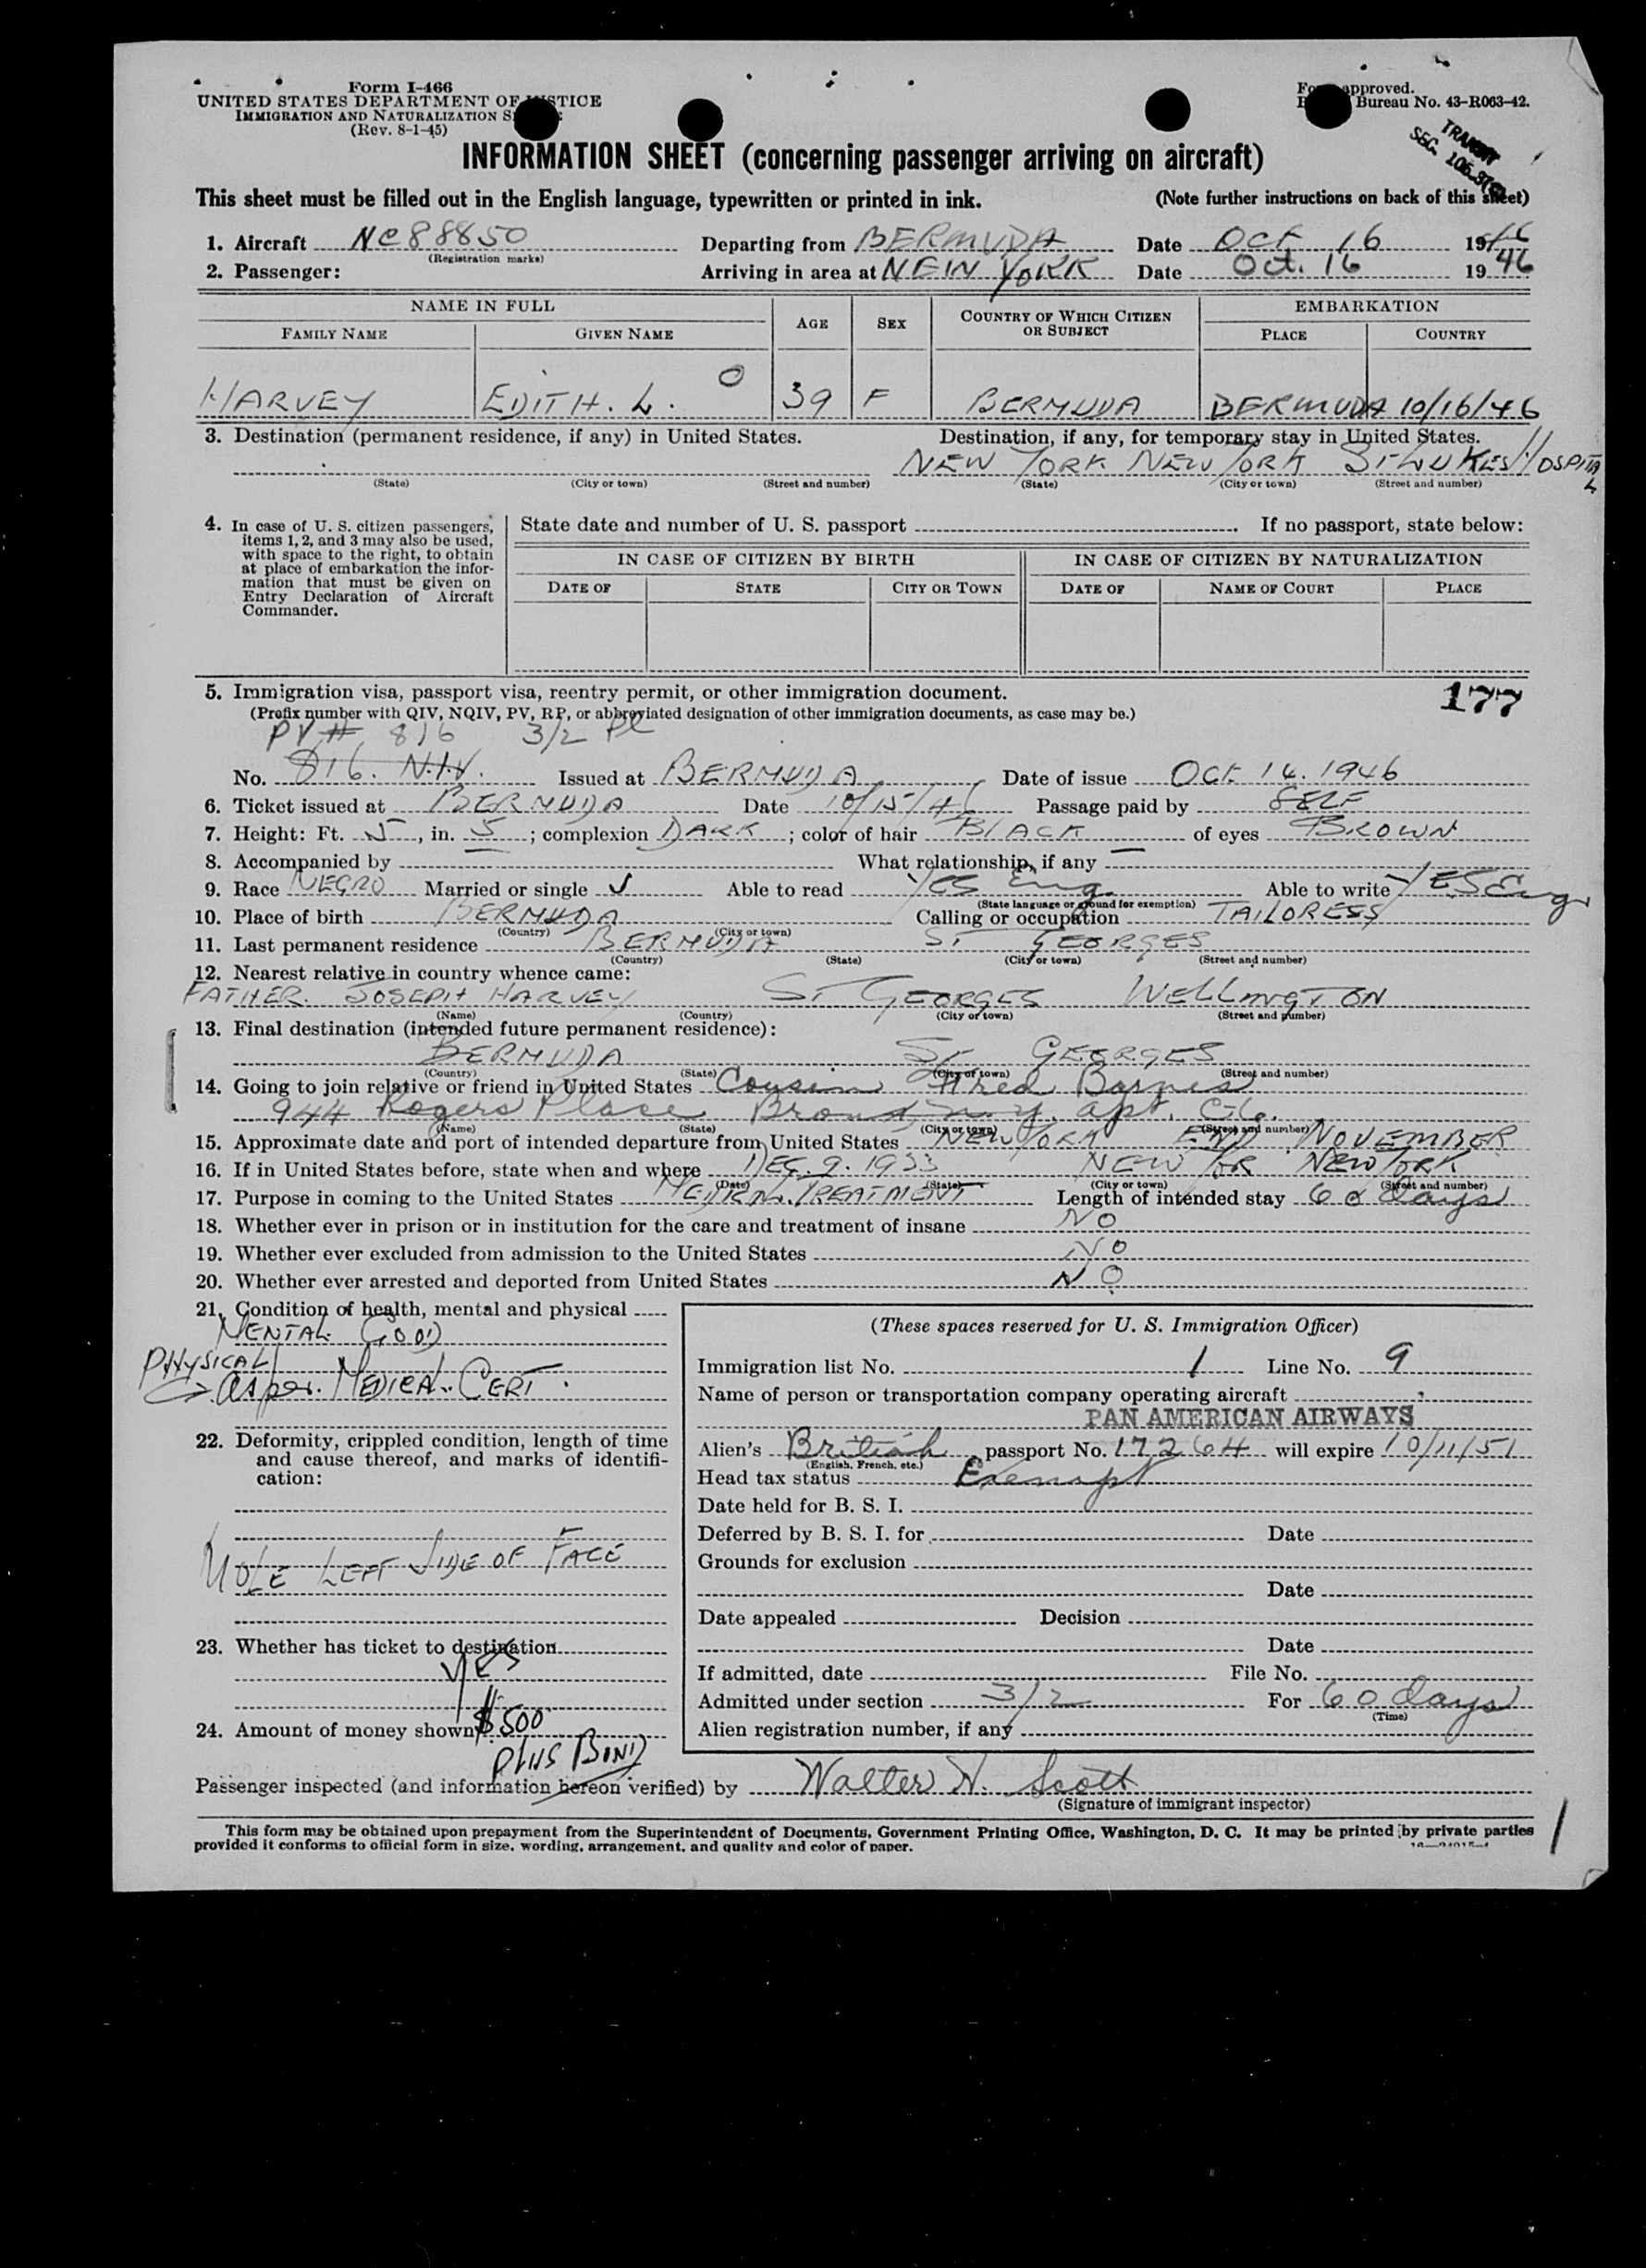 Form I-466
UNITED STATES DEPARTMENT OF JUSTICE
IMMIGRATION AND NATURALIZATION
(Rev. 8-1-45)
Form approved.
Bureau No. 43-R063-42.
TRANSIT
SEC. 105.3
INFORMATION SHEET (concerning passenger arriving on aircraft)
This sheet must be filled out in the English language, typewritten or printed in ink. (Note further instructions on back of this sheet)
1. Aircraft NC88850 Departing from BERMUDA Date OCT 16 1946
(Registration marks)
2. Passenger: Arriving in area at NEW YORK Date Oct. 16 1946
NAME IN FULL AGE SEX COUNTRY OF WHICH CITIZEN OR SUBJECT EMBARKATION
FAMILY NAME GIVEN NAME PLACE COUNTRY
HARVEY EDITH. L. O 39 F BERMUDA BERMUDA 10/16/46
3. Destination (permanent residence, if any) in United States. Destination, if any, for temporary stay in United States.
NEW YORK NEW YORK ST LUKES HOSPITAL
(State) (City or town) (Street and number) (State) (City or town) (Street and number)
4. In case of U. S. citizen passengers, items 1, 2, and 3 may also be used, with space to the right, to obtain at place of embarkation the information that must be given on Entry Declaration of Aircraft Commander.
State date and number of U. S. passport . If no passport, state below:
IN CASE OF CITIZEN BY BIRTH IN CASE OF CITIZEN BY NATURALIZATION
DATE OF STATE CITY OR TOWN DATE OF NAME OF COURT PLACE
5. Immigration visa, passport visa, reentry permit, or other immigration document. 177
(Prefix number with QIV, NQIV, PV, RP, or abbreviated designation of other immigration documents, as case may be.)
PV # 816 3/2 Pl
No. 816. N.I.V. Issued at BERMUDA Date of issue OCT. 14. 1946
6. Ticket issued at BERMUDA Date 10/15/46 Passage paid by SELF
7. Height: Ft. 5, in. 5; complexion DARK; color of hair BLACK of eyes BROWN
8. Accompanied by — What relationship, if any —
9. Race NEGRO Married or single ✓ Able to read YES Eng. Able to write YES Eng.
(State language or ground for exemption)
10. Place of birth BERMUDA Calling or occupation TAILORESS
(Country) (City or town)
11. Last permanent residence BERMUDA ST GEORGES
(Country) (State) (City or town) (Street and number)
12. Nearest relative in country whence came:
FATHER. JOSEPH HARVEY ST GEORGES WELLINGTON
(Name) (Country) (City or town) (Street and number)
13. Final destination (intended future permanent residence):
BERMUDA ST GEORGES
(Country) (State) (City or town) (Street and number)
14. Going to join relative or friend in United States Cousin Fred Barnes
944 Rogers Place N.Y. apt. C-6.
(Name) (State) (City or town) (Street and number)
15. Approximate date and port of intended departure from United States NEW YORK END NOVEMBER
16. If in United States before, state when and where DEC. 9. 1933 NEW YOR NEW YORK
(Date) (State) (City or town) (Street and number)
17. Purpose in coming to the United States MEDICAL TREATMENT Length of intended stay 60 days
18. Whether ever in prison or in institution for the care and treatment of insane NO
19. Whether ever excluded from admission to the United States NO
20. Whether ever arrested and deported from United States NO
21. Condition of health, mental and physical
MENTAL GOOD
PHYSICAL
as per. MEDICAL CERT.
22. Deformity, crippled condition, length of time and cause thereof, and marks of identification:
MOLE LEFT SIDE OF FACE
23. Whether has ticket to destination
YES
24. Amount of money shown $500
PLUS BOND
(These spaces reserved for U. S. Immigration Officer)
Immigration list No. 1 Line No. 9
Name of person or transportation company operating aircraft
PAN AMERICAN AIRWAYS
Alien's British passport No. 17264 will expire 10/11/51
(English, French, etc.)
Head tax status Exempt
Date held for B. S. I.
Deferred by B. S. I. for Date
Grounds for exclusion
Date
Date appealed Decision
Date
If admitted, date File No.
Admitted under section 3/2 For 60 days
(Time)
Alien registration number, if any
Passenger inspected (and information hereon verified) by Walter N. Scott
(Signature of immigrant inspector)
This form may be obtained upon prepayment from the Superintendent of Documents, Government Printing Office, Washington, D. C. It may be printed by private parties
provided it conforms to official form in size, wording, arrangement, and quality and color of paper.